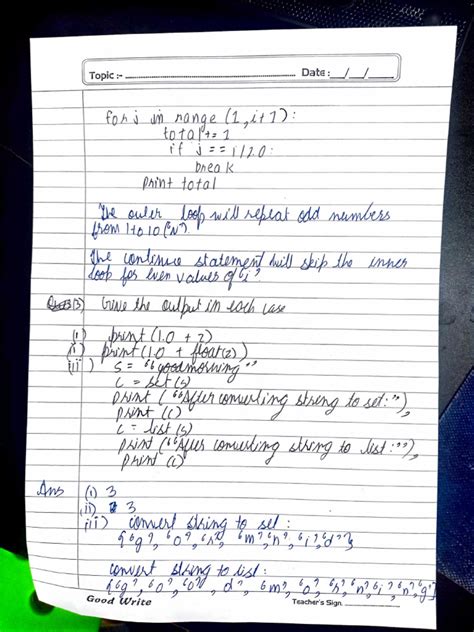 Topic :- Date : __/__/__
for j in range (1, i+1):
total += 1
if j == i/2.0:
break
print total
The outer loop will repeat odd numbers
from 1 to 10 ("N").
The continue statement will skip the inner
loop for even values of "i"
13) Give the output in each case
(i) print (1.0 + 2)
(ii) print (1.0 + float(2))
(iii) S = "goodmorning"
C = set (s)
print ("After converting string to set:"),
print (c)
C = list (s)
print ("After converting string to list:"),
print (c)
Ans (i) 3
(ii) 3
(iii) convert string to set :
{'g', 'o', 'r', 'm', 'n', 'i', 'd'}
convert string to list :
['g', 'o', 'o', 'd', 'm', 'o', 'r', 'n', 'i', 'n', 'g']
Good Write Teacher's Sign